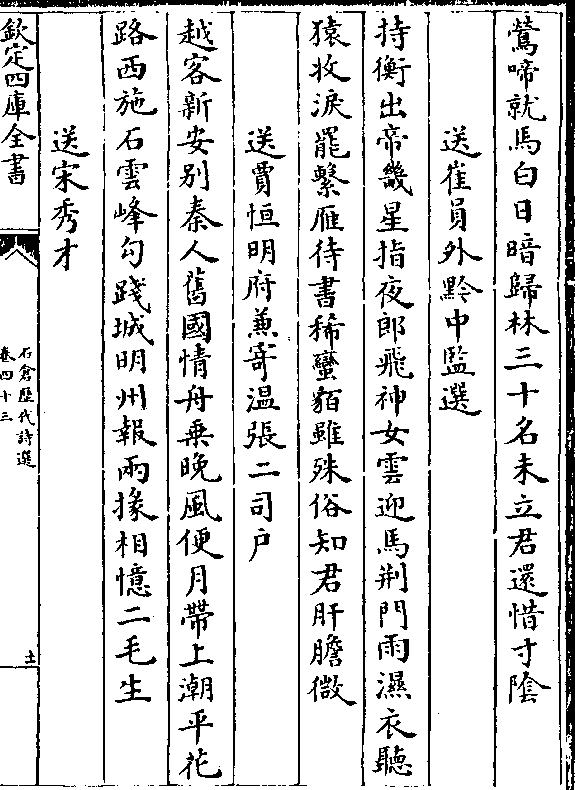 鶯啼就馬白日暗歸林三十名未立君還惜寸陰
送崔員外黔中監選
持衡出帝畿星指夜郎飛神女雲迎馬荆門雨濕衣聽
猿收淚罷繫雁待書稀蠻貊雖殊俗知君肝膽微
送賈恒明府兼寄温張二司户
越客新安别秦人舊國情舟乗晚風便月帶上潮平花
路西施石雲峰勾踐城明州報兩掾相憶二毛生
送宋秀才
欽定四庫全書
石倉歴代詩選
卷四十三
十一